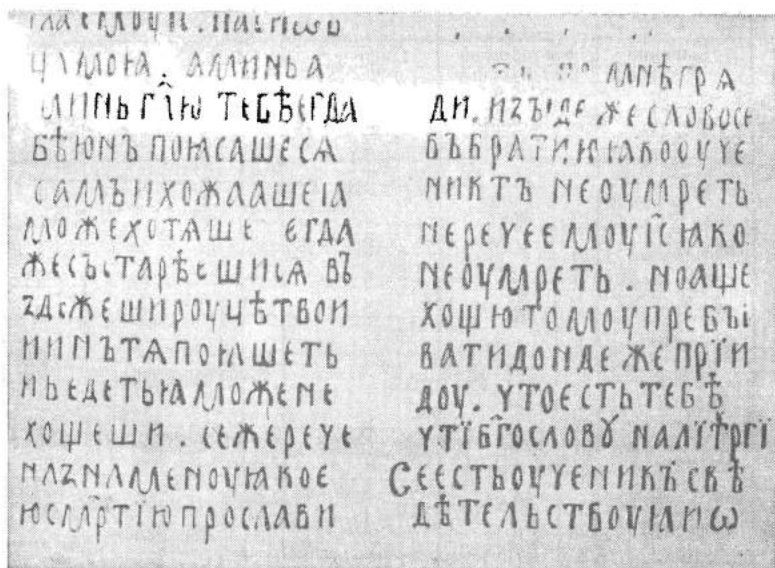 цѧ моꙗ. аминь а
минь гл҃ю тебѣ егда
бѣ юнъ поꙗсашесѧ
самъ и хожаше ꙗ
може хотѧше егда
же състарѣешисѧ въ
здежеши роуцѣ твои
и инъ тѧ поꙗшеть
и ведеть ꙗможе не
хощеши. се же рече
назнаменоуꙗ коѥ
ю см҃ртїю прослави
мнѣ грѧ
ди. изъıде же слово се
въ братию ꙗко оуче
никтъ не оумреть
не рече емоу і҃с ꙗко
не оумреть. но аще
хощю томоу пребъі
вати дондеже прїи
доу. что есть тебѣ
чтї бг҃ослову на літѹргї
Се есть оученикъ свѣ
дѣтельствоуꙗи ѡ